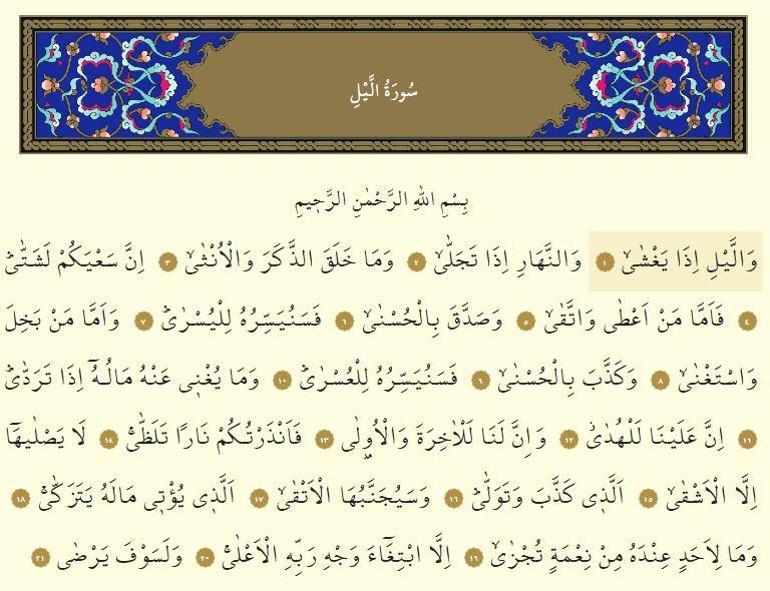 سُورَةُ الَّيْلِ
بِسْمِ اللهِ الرَّحْمٰنِ الرَّح۪يمِ
وَالَّيْلِ اِذَا يَغْشٰىۙ ١ وَالنَّهَارِ اِذَا تَجَلّٰىۙ ٢ وَمَا خَلَقَ الذَّكَرَ وَالْاُنْثٰىۙ ٣ اِنَّ سَعْيَكُمْ لَشَتّٰىۜ
٤ فَاَمَّا مَنْ اَعْطٰى وَاتَّقٰىۙ ٥ وَصَدَّقَ بِالْحُسْنٰىۙ ٦ فَسَنُيَسِّرُهُ لِلْيُسْرٰىۜ ٧ وَاَمَّا مَنْ بَخِلَ
وَاسْتَغْنٰىۙ ٨ وَكَذَّبَ بِالْحُسْنٰىۙ ٩ فَسَنُيَسِّرُهُ لِلْعُسْرٰىۜ ١٠ وَمَا يُغْن۪ي عَنْهُ مَالُـهُٓ اِذَا تَرَدّٰىۜ
١١ اِنَّ عَلَيْنَا لَلْهُدٰىۘ ١٢ وَاِنَّ لَنَا لَلْاٰخِرَةَ وَالْاُو۫لٰى ١٣ فَاَنْذَرْتُكُمْ نَارًا تَلَظّٰىۚ ١٤ لَا يَصْلٰيهَٓا
اِلَّا الْاَشْقٰىۙ ١٥ اَلَّذ۪ي كَذَّبَ وَتَوَلّٰىۜ ١٦ وَسَيُجَنَّبُهَا الْاَتْقٰىۙ ١٧ اَلَّذ۪ي يُؤْت۪ي مَالَهُ يَتَزَكّٰىۚ ١٨
وَمَا لِاَحَدٍ عِنْدَهُ مِنْ نِعْمَةٍ تُجْزٰىۙ ١٩ اِلَّا ابْتِغَٓاءَ وَجْهِ رَبِّهِ الْاَعْلٰىۚ ٢٠ وَلَسَوْفَ يَرْضٰى ٢١